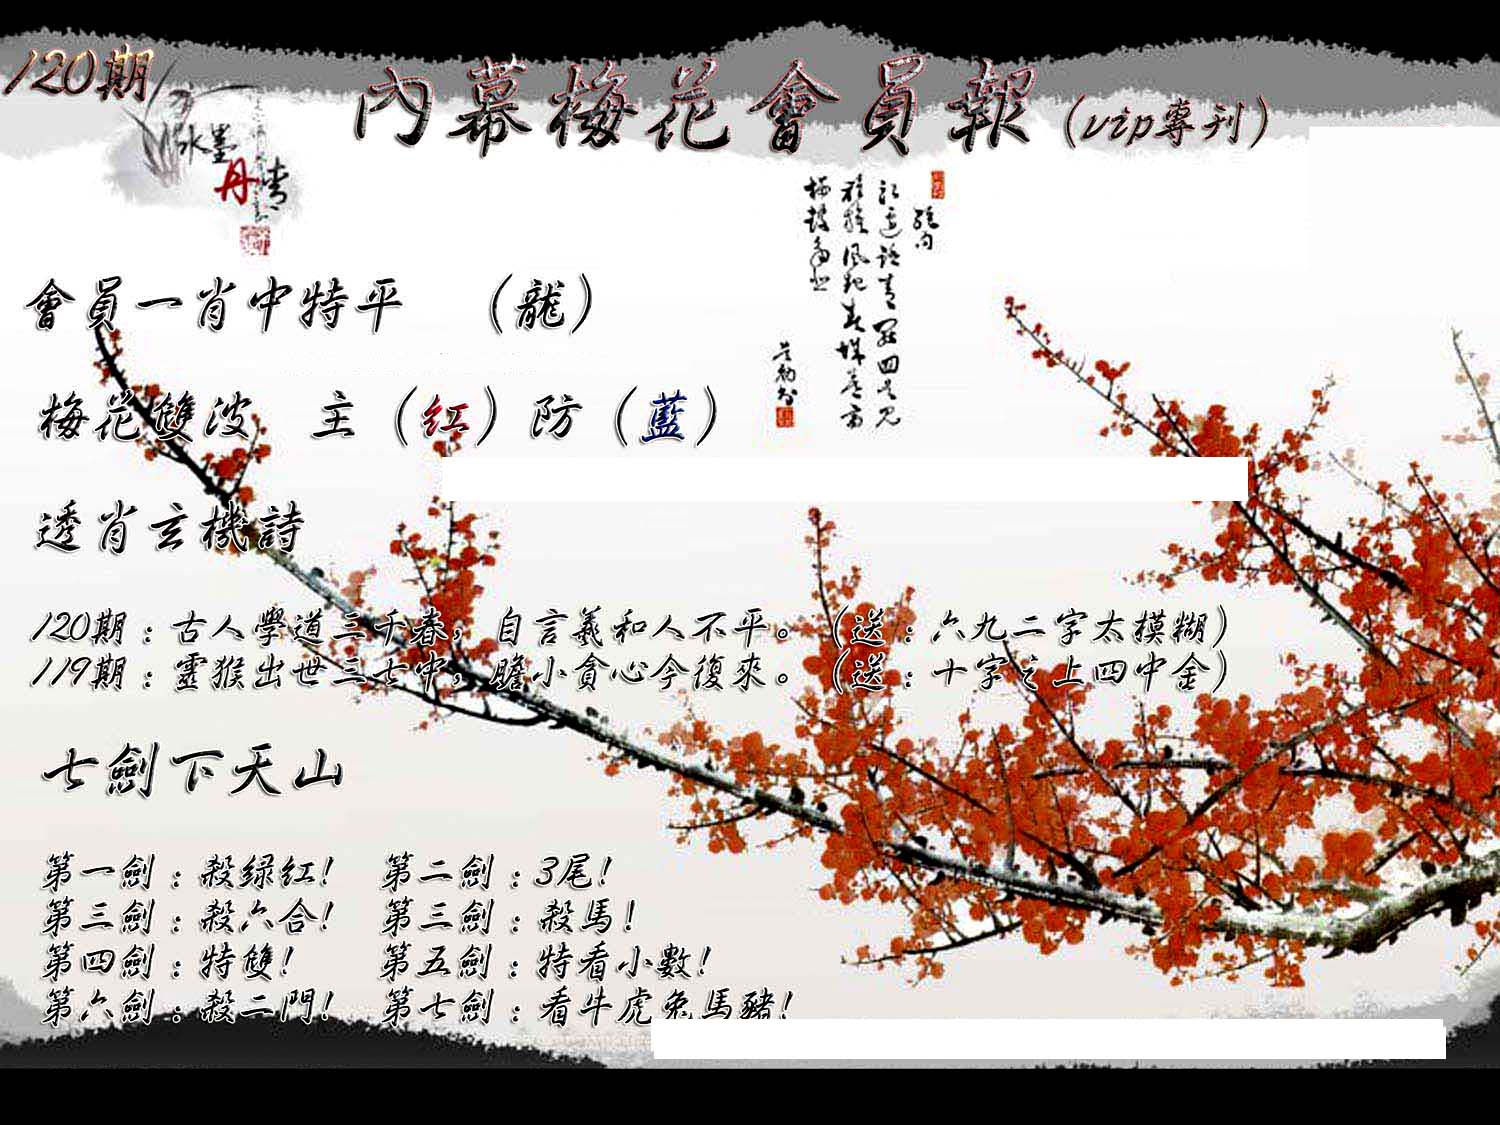 120期
內幕梅花會員報(vip專刊)
水墨
丹青
會員一肖中特平 (龍)
梅花雙波 主(紅)防(藍)
透肖玄機詩
120期:古人學道三千春,自言羲和人不平。(送:六九二字太模糊)
119期:靈猴出世三七中,膽小貪心今復來。(送:十字之上四中金)
七劍下天山
第一劍:殺绿红! 第二劍:3尾!
第三劍:殺六合! 第三劍:殺馬!
第四劍:特雙! 第五劍:特看小數!
第六劍:殺二門! 第七劍:看牛虎兔馬豬!